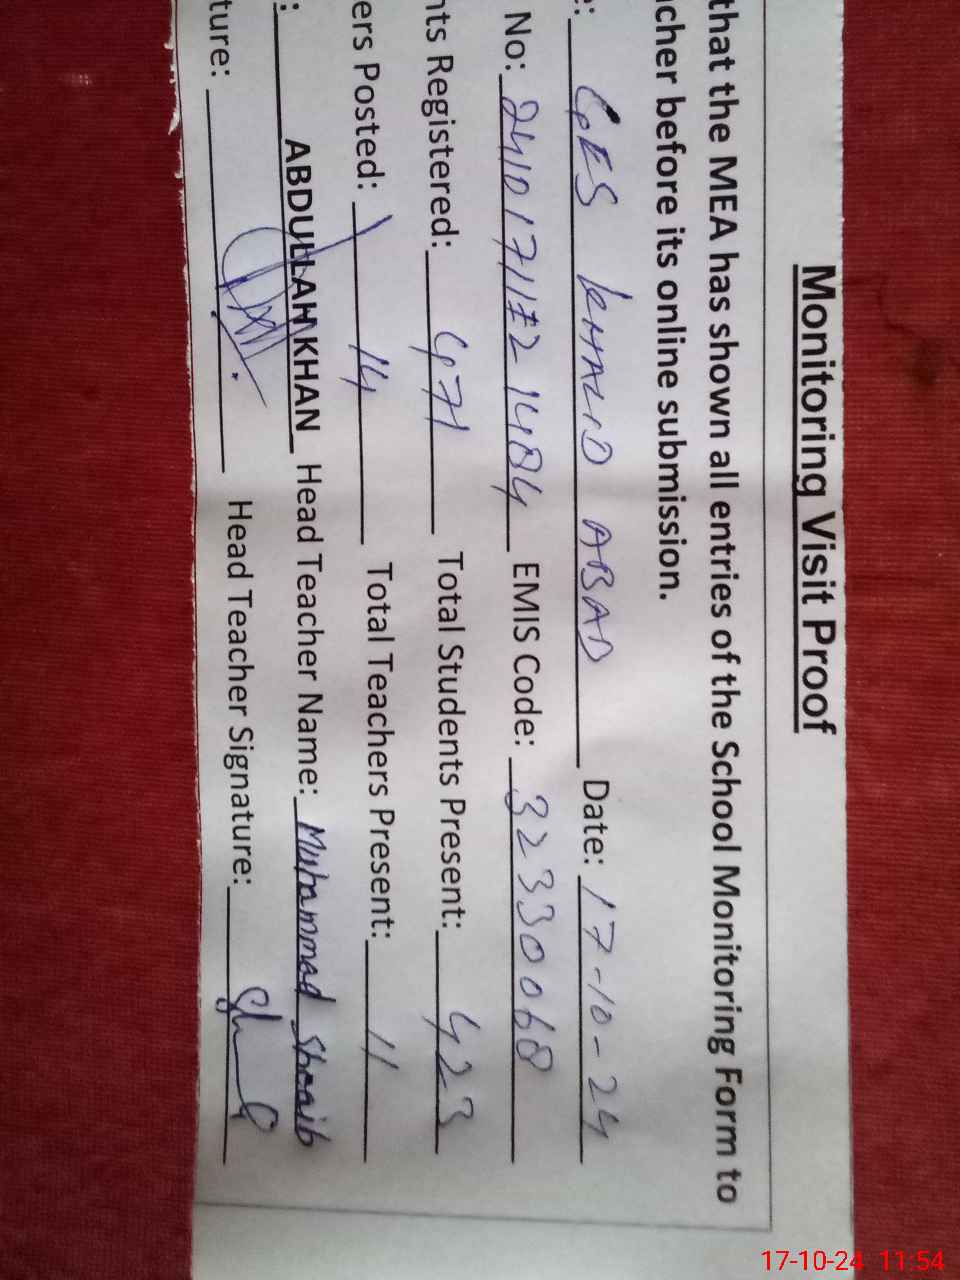 Monitoring Visit Proof
that the MEA has shown all entries of the School Monitoring Form to
cher before its online submission.
e: GES KHALID ABAD Date: 17-10-24
No: EMIS Code: 32330068
nts Registered: 471 Total Students Present: 423
ers Posted: 14 Total Teachers Present: 11
: ABDULLAH KHAN Head Teacher Name: Muhammad Shoaib
ture: Head Teacher Signature:
17-10-24 11:54